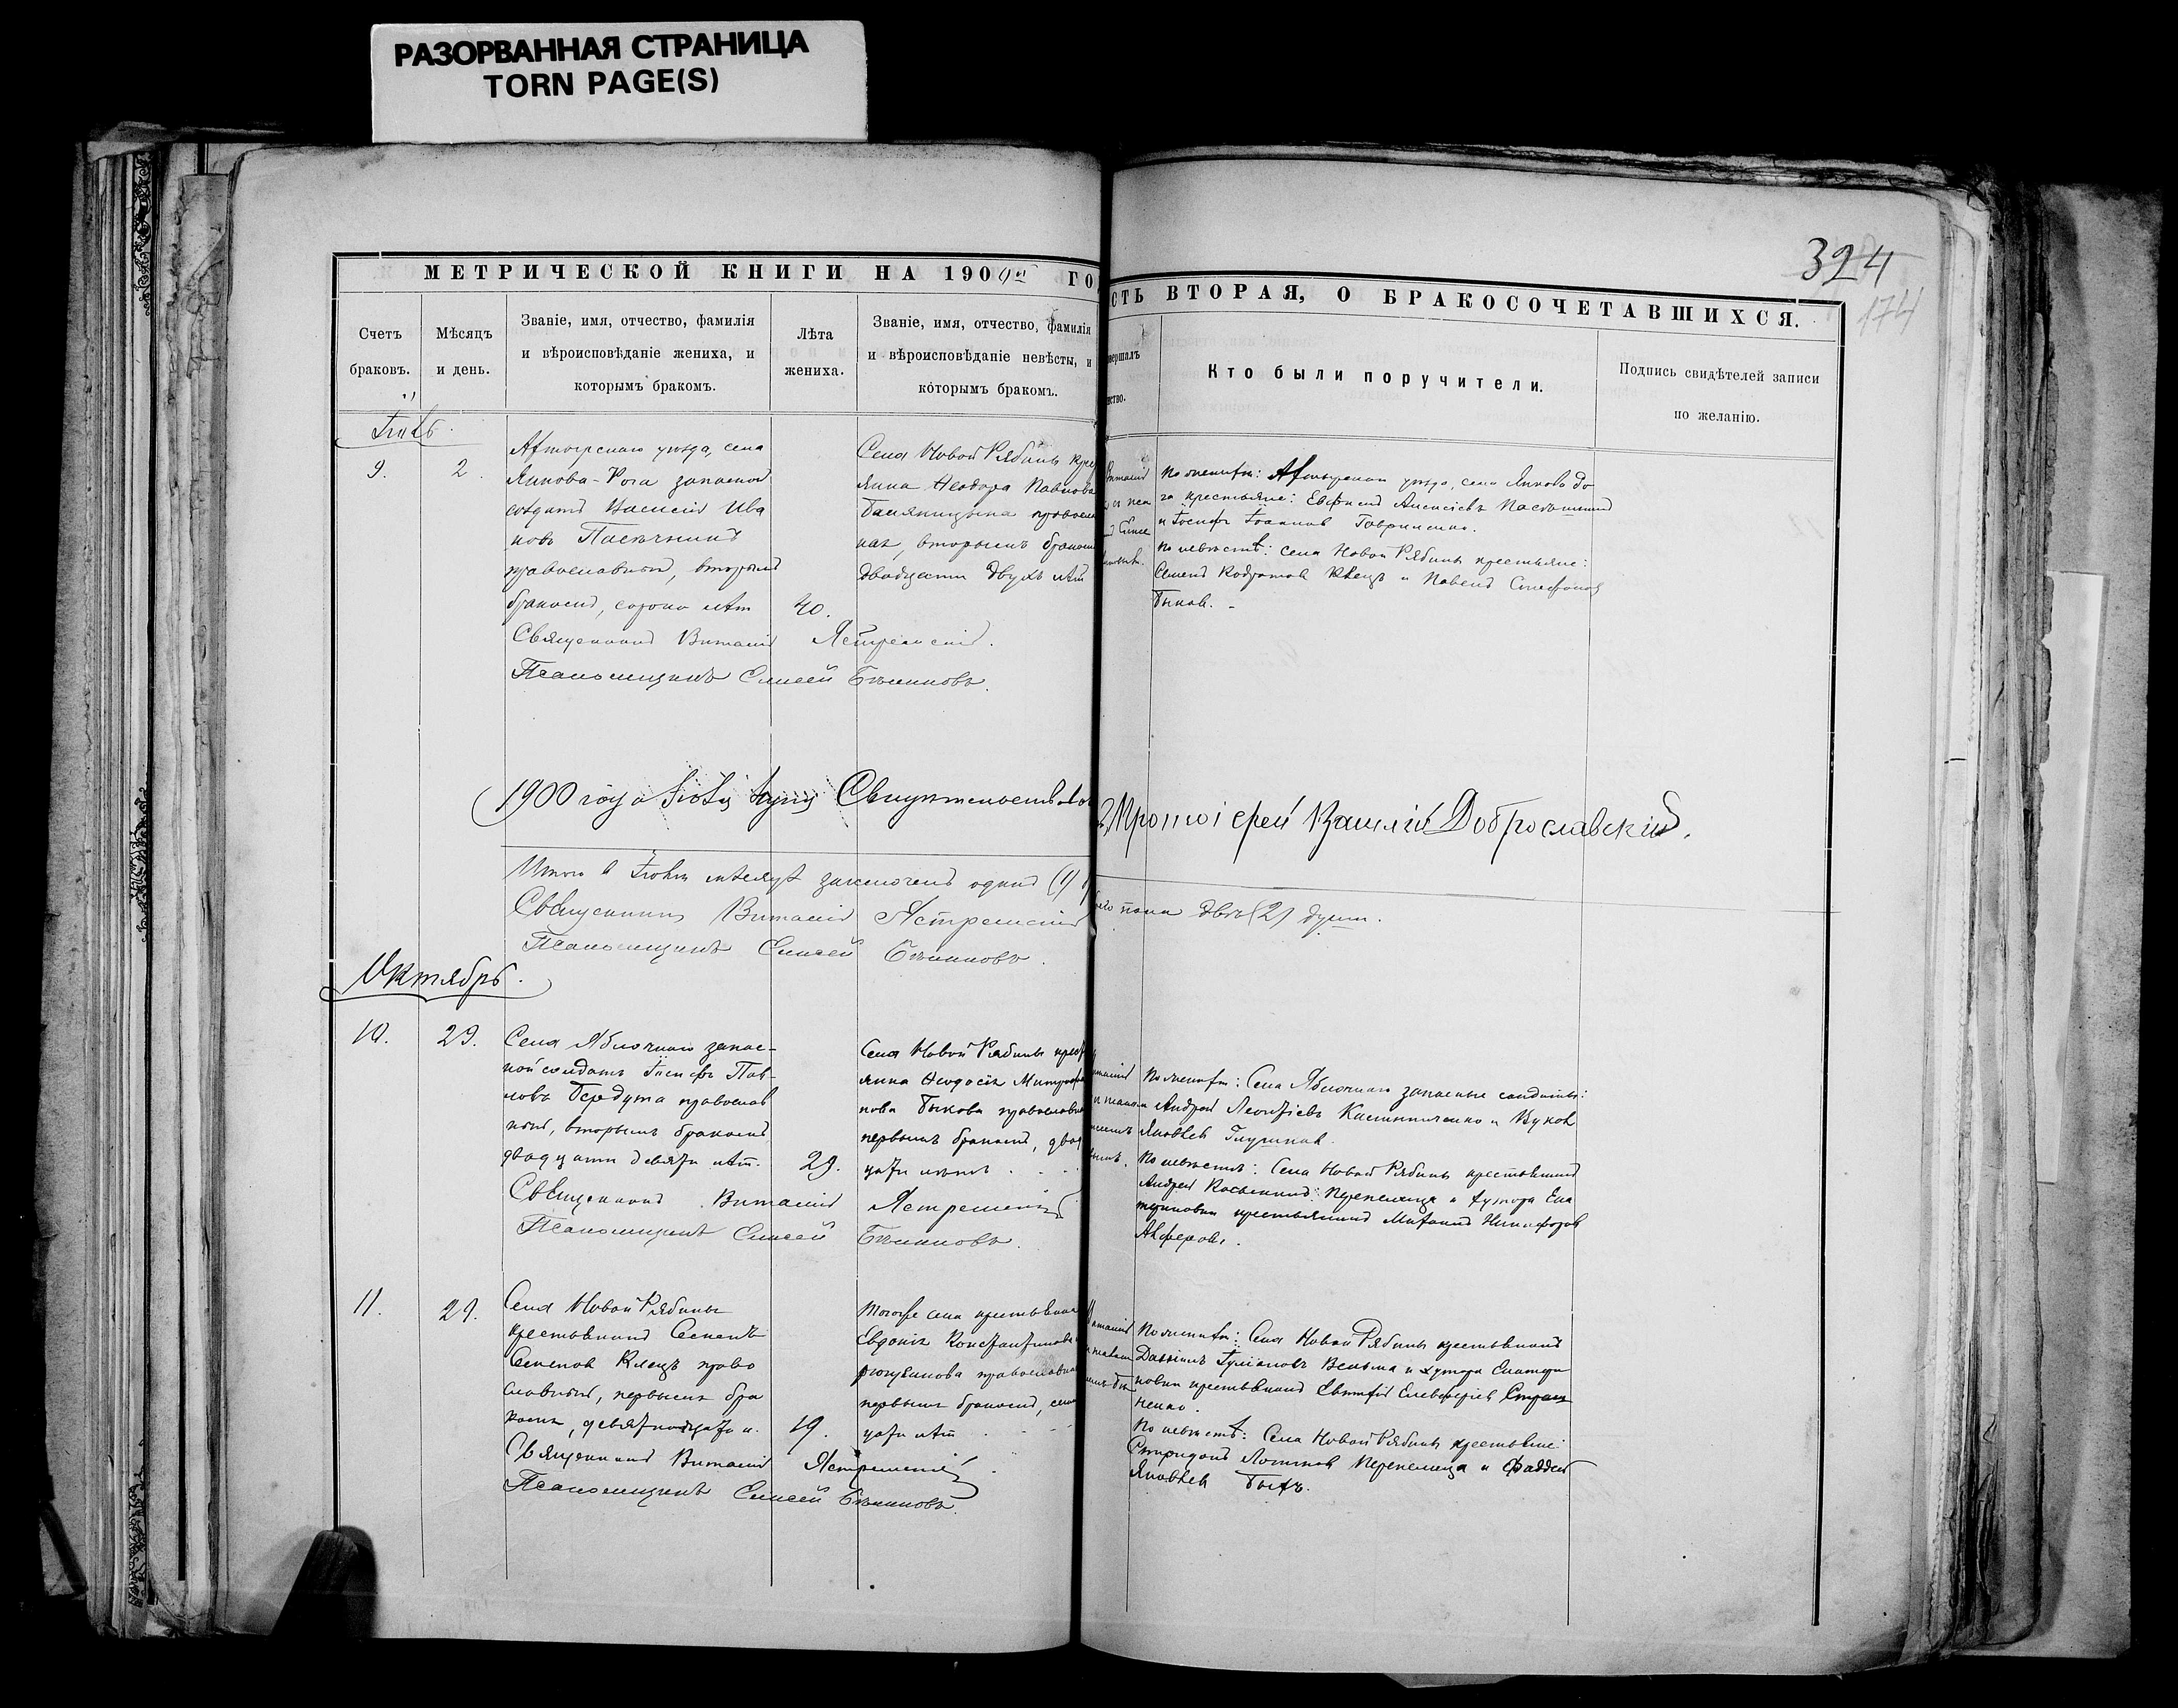 РАЗОРВАННАЯ СТРАНИЦА
TORN PAGE(S)
324
174
МЕТРИЧЕСКОЙ КНИГИ НА 1900й ГО
СТЬ ВТОРАЯ, О БРАКОСОЧЕТАВШИХСЯ.
Счетъ
браковъ.
Мѣсяцъ
и день.
Званіе, имя, отчество, фамилія
и вѣроисповѣданіе жениха, и
которымъ бракомъ.
Лѣта
жениха.
Званіе, имя, отчество, фамилія
и вѣроисповѣданіе невѣсты, и
которымъ бракомъ.
вершалъ
ство.
Кто были поручители.
Подпись свидѣтелей записи
по желанію.
9.
2.
уѣзда, села
Янкова-Рога запасной
солдатъ Ива
новъ
православный, вторымъ
бракомъ, сорока лѣт
40.
Села Новой Рябины
янка Ѳеодора Павлова
ная, вторымъ бракомъ
двадцати двухъ лѣт
По женихѣ: уѣзда, села Янкова Ро
га крестьяне: Алексѣевъ
и Іосифъ Іоанновъ Гавриленко.
По невѣстѣ: села Новой Рябины крестьяне:
Семенъ Кодратовъ Клецъ и Павелъ Стефановъ
Быковъ.
Священникъ Виталій Ястремскій.
Псаломщикъ Елисей
1900 года Іюля Свидѣтельствовалъ
Протоіерей Василій Доброславскій.
Итого в Іюлѣ мѣсяцѣ заключенъ одинъ (1)
пола двѣ (2) души.
Священникъ Виталій Ястремскій
Псаломщикъ Елисей
Октябрь.
10.
29.
Села Яблочнаго запас-
ной солдатъ Іосифъ Пав-
ловъ Бередута православ
ный, вторымъ бракомъ,
двадцати девяти лѣт.
29.
Села Новой Рябины крест
янка Ѳеодосія Митрофа
нова Быкова православная
первымъ бракомъ, двад
цати лѣтъ
По женихѣ: Села Яблочнаго запасные солдаты:
Андрей Леонтіевъ и
Яковлев Глушковъ.
По невѣстѣ: Села Новой Рябины крестьянинъ
Андрей Перепелица и хутора Ека
териновки крестьянинъ Никифоров
Алферовъ.
Священникъ Виталій Ястремскій
Псаломщикъ Елисей
11.
29.
Села Новой Рябины
крестьянинъ Семенъ
Семеновъ Клецъ право
славный, первымъ бра
комъ, девятнадцати л.
19.
Тогоже села крестьянка
Евдокія Константинова
православная
первымъ бракомъ, семн
цати лѣт
По женихѣ: Села Новой Рябины крестьянинъ
Даніилъ Іуліановъ Вельма и хутора Екатери
новки крестьянинъ Евтихій Елевферіев
ненко.
По невѣстѣ: Села Новой Рябины крестьяне:
Спиридонъ Логинов Перепелица и Фаддей
Яковлев Быкъ.
Священникъ Виталій Ястремскій
Псаломщикъ Елисей